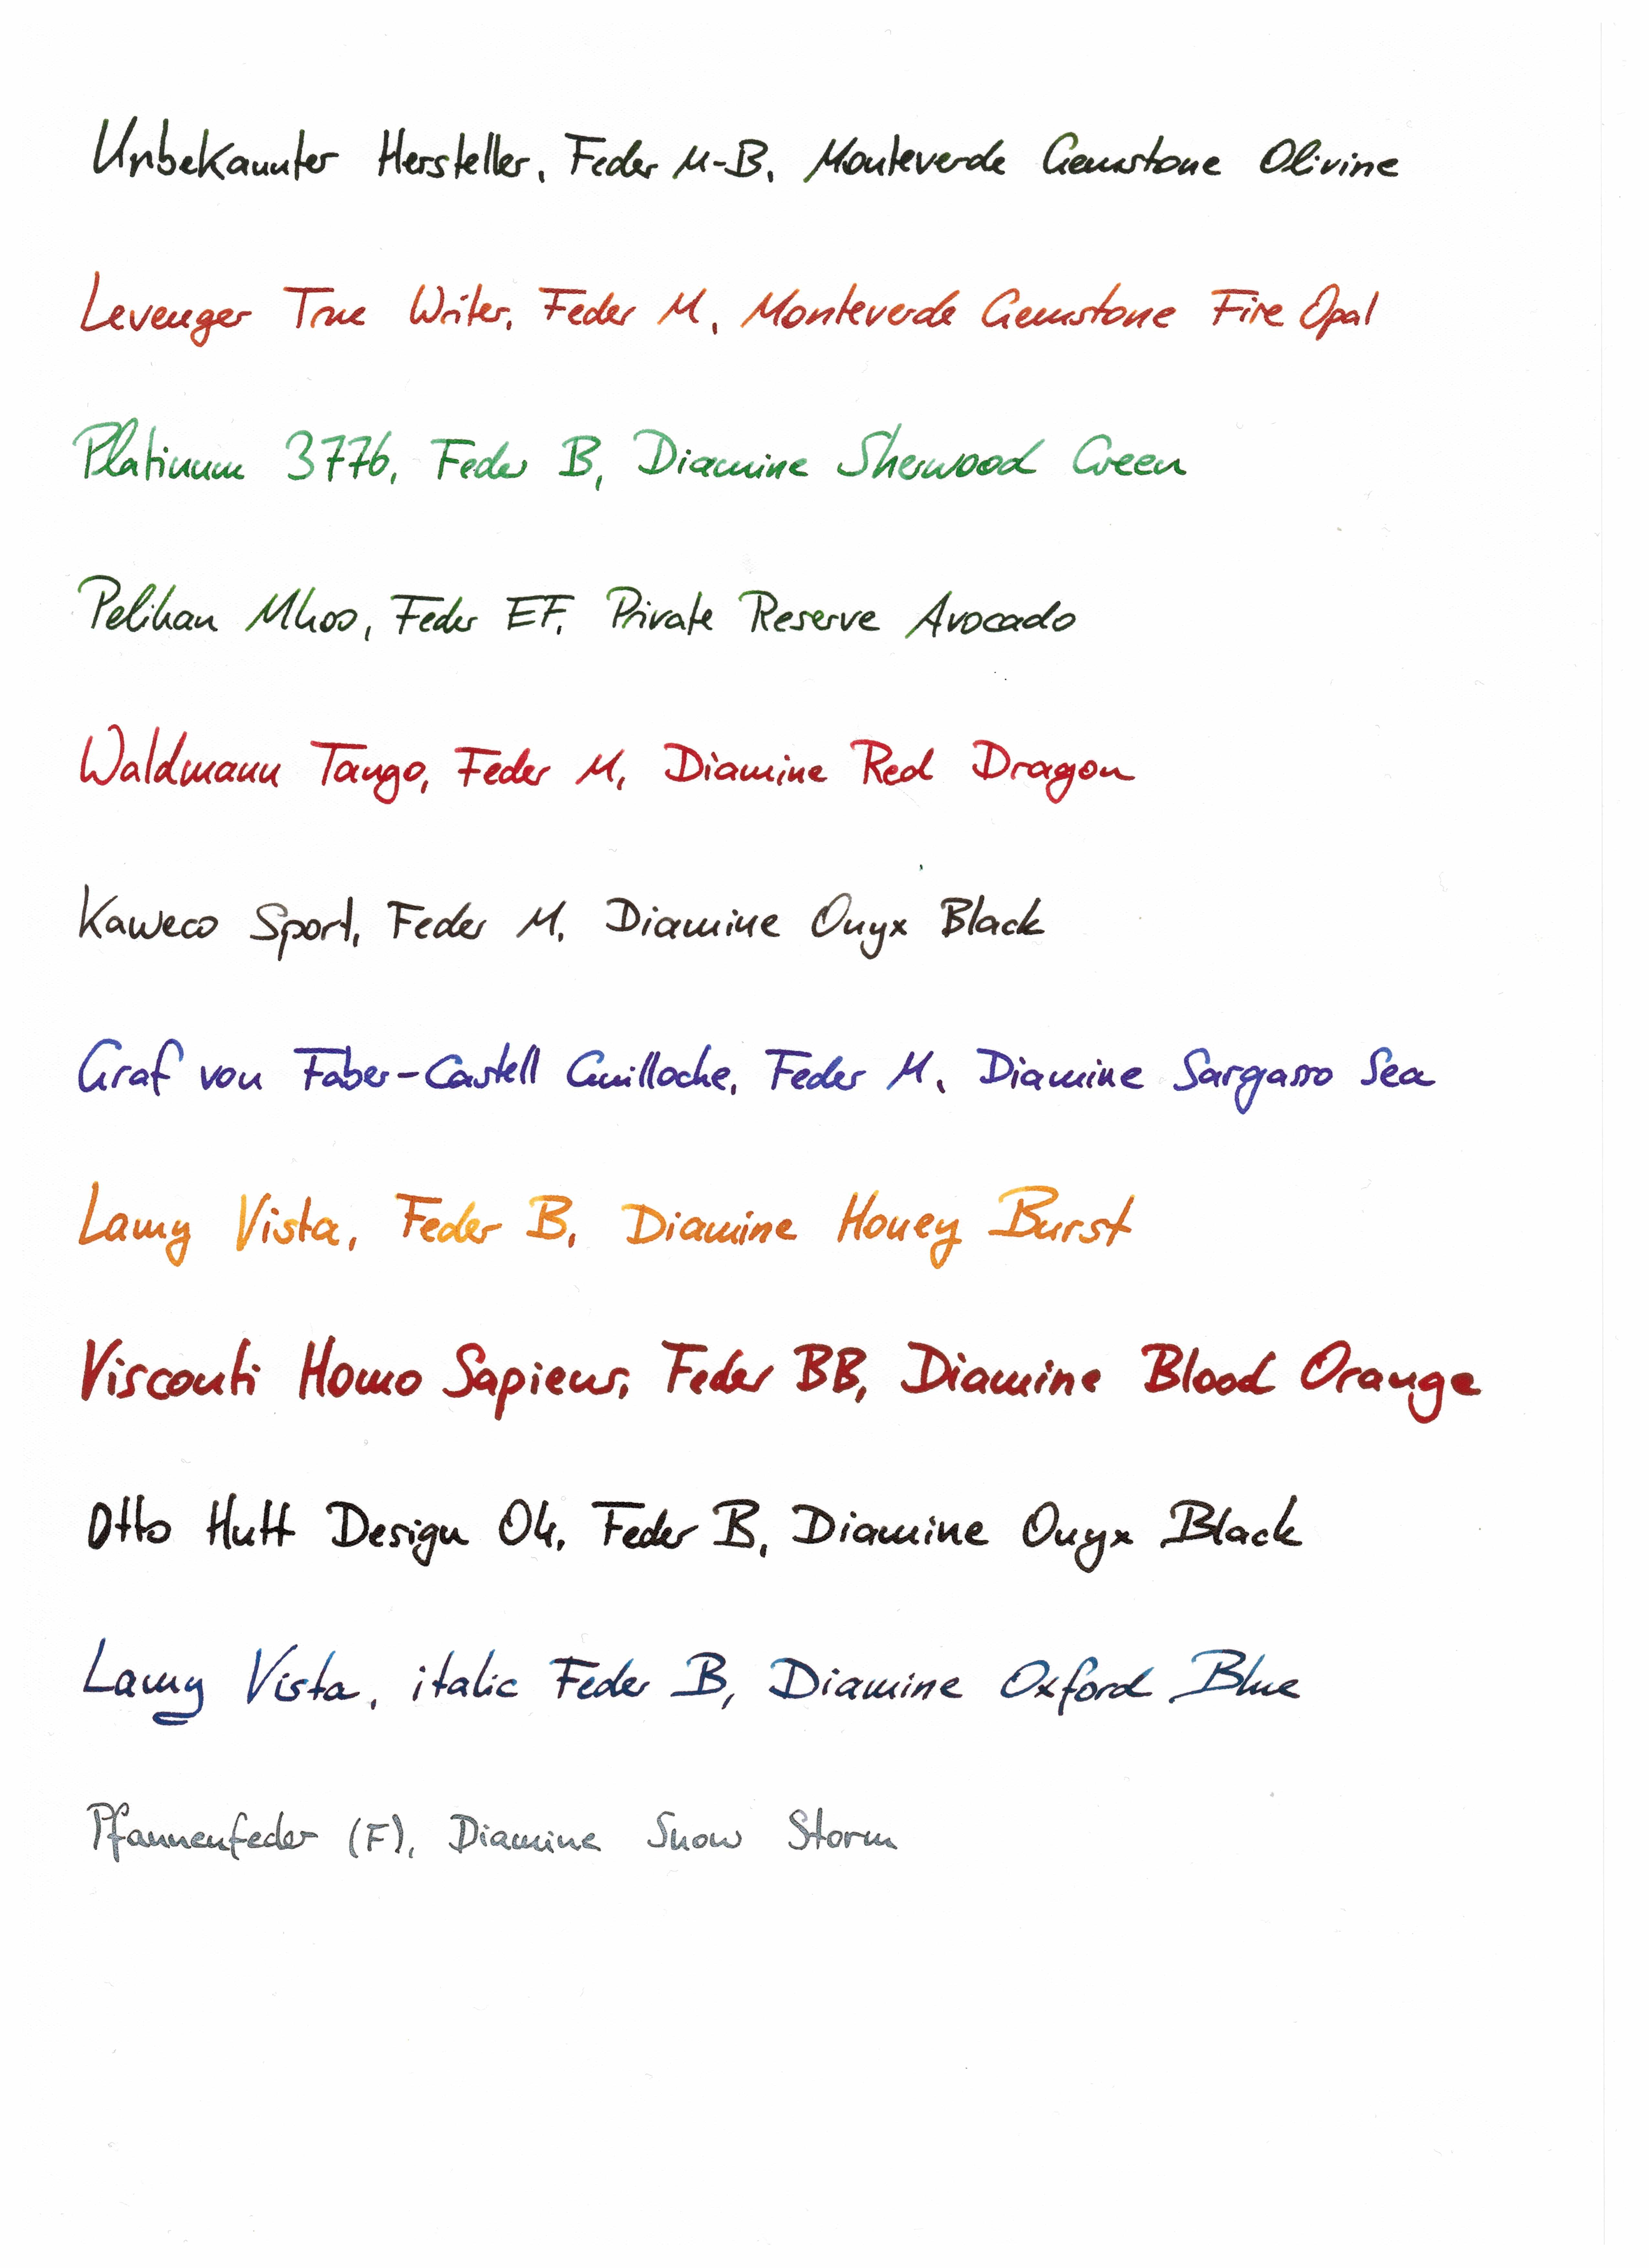 Unbekannter Hersteller, Feder M-B, Monteverde Gemstone Olivine
Levenger True Writer, Feder M, Monteverde Gemstone Fire Opal
Platinum 3776, Feder B, Diamine Sherwood Green
Pelikan M400, Feder EF, Private Reserve Avocado
Waldmann Tango, Feder M, Diamine Red Dragon
Kaweco Sport, Feder M, Diamine Onyx Black
Graf von Faber-Castell Guilloche, Feder M, Diamine Sargasso Sea
Lamy Vista, Feder B, Diamine Honey Burst
Visconti Homo Sapiens, Feder BB, Diamine Blood Orange
Otto Hutt Design 04, Feder B, Diamine Onyx Black
Lamy Vista, italic Feder B, Diamine Oxford Blue
Pfannenfeder (F), Diamine Snow Storm